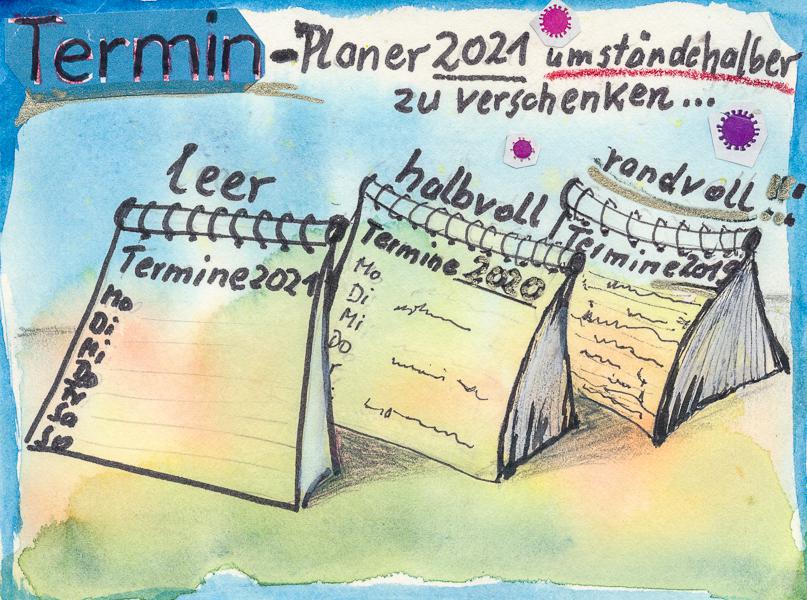 Termin-Planer 2021 umständehalber
zu verschenken...
leer
halbvoll
randvoll !!!...
Termine 2021
Mo
Di
Mi
Do
Fr
Sa
So
Termine 2020
Mo
Di
Mi
Do
Termine 2019